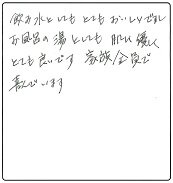 飲み水としてもとてもおいしいですし
お風呂の湯としても肌に優しく
とても良いです 家族全員で
喜んでいます